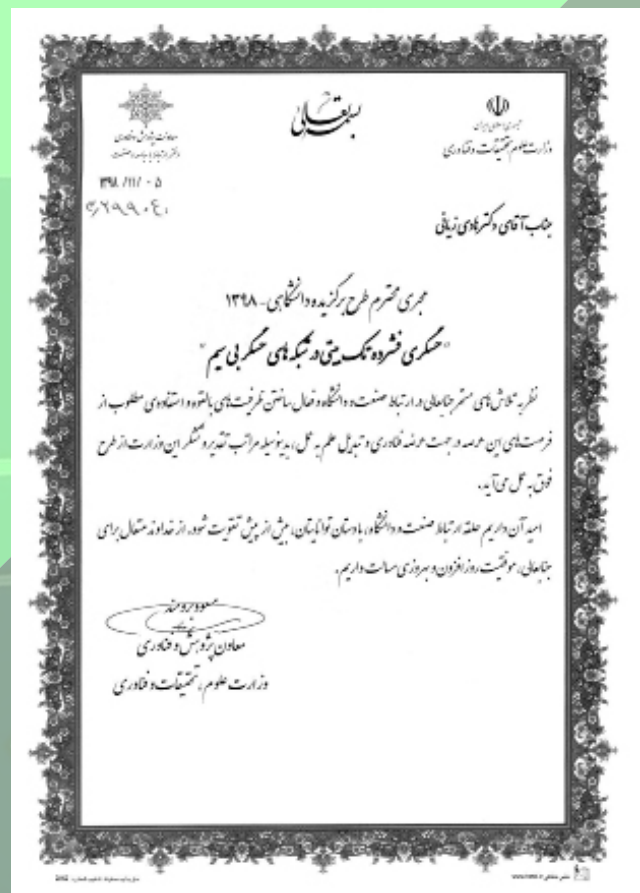 بسمه تعالی
جمهوری اسلامی ایران
وزارت علوم تحقیقات و فناوری
معاونت پژوهش و فناوری
دفتر ارتباط با جامعه و صنعت
۱۳۹۸/۱۱/۰۵
جناب آقای دکتر هادی زیانی
مجری محترم طرح برگزیده دانشگاهی - ۱۳۹۸
"حسگری فشرده تک بیتی در شبکه های حسگر بی سیم"
نظر به تلاش های مستمر جنابعالی در ارتباط صنعت و دانشگاه و فعال ساختن ظرفیت های بالقوه و استفاده ی مطلوب از
فرصت های این عرصه در جهت عرضه فناوری و تبدیل علم به عمل، بدینوسیله مراتب تقدیر و تشکر این وزارت از طرح
فوق به عمل می آید.
امید آن داریم حلقه ارتباط صنعت و دانشگاه، با دستان توانایتان، بیش از پیش تقویت شود. از خداوند متعال برای
جنابعالی، موفقیت روز افزون و بهروزی مسالت داریم.
مسعود برومند
معاون پژوهش و فناوری
وزارت علوم، تحقیقات و فناوری